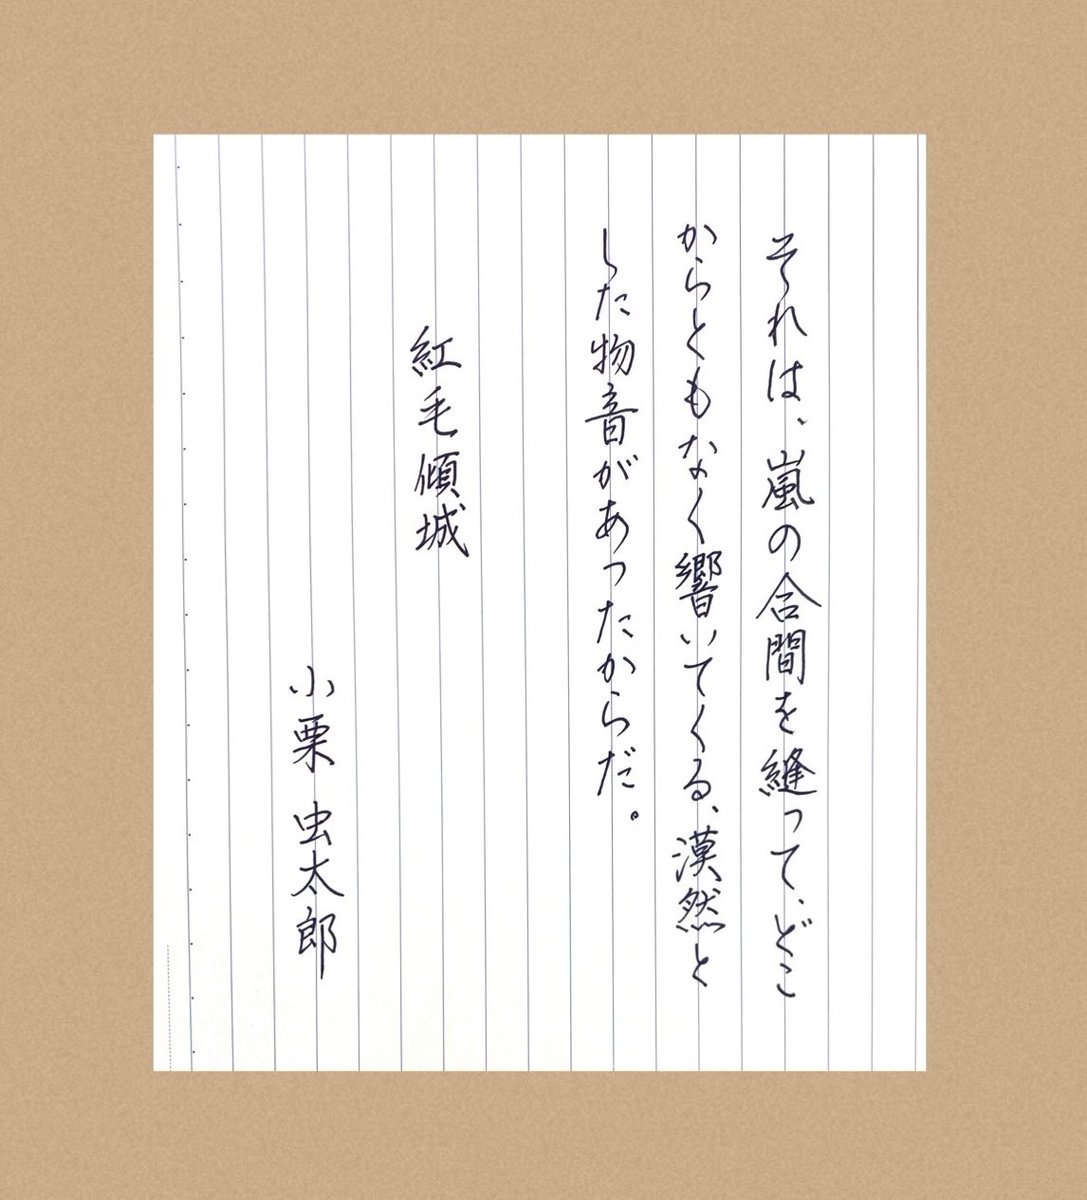 それは、嵐の合間を縫って、どこ
からともなく響いてくる、漠然と
した物音があったからだ。
紅毛傾城
小栗 虫太郎